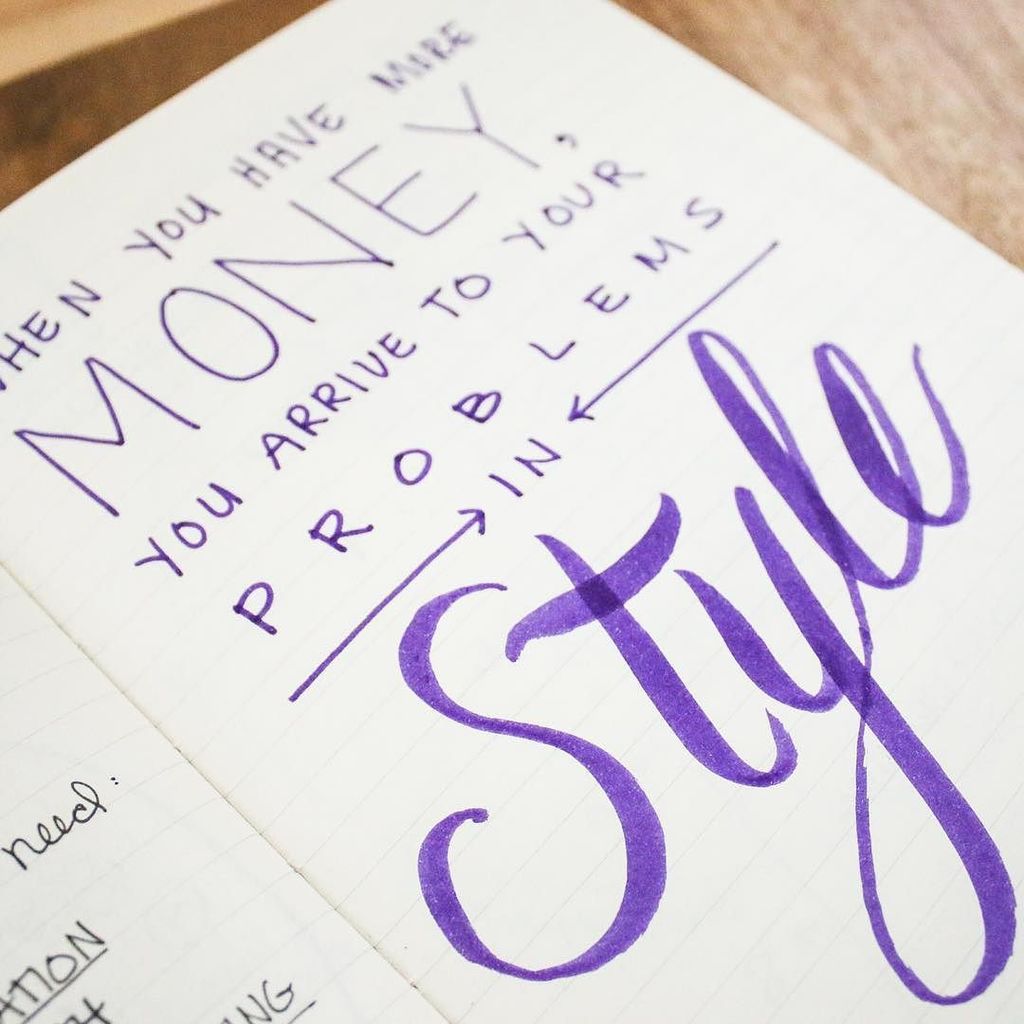 WHEN YOU HAVE MORE
MONEY,
YOU ARRIVE TO YOUR
PROBLEMS
IN
Style
need: